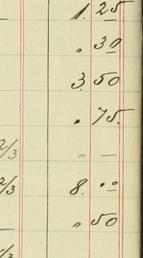 1.25
„ 30
3 50
. 75.
2/3 „ —
2/3 8. 00
„ 50